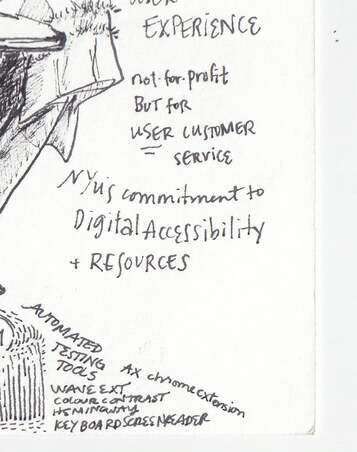 USER
EXPERIENCE
not-for-profit
BUT for
USER CUSTOMER
SERVICE
NYU's commitment to
Digital Accessibility
+ RESOURCES
AUTOMATED
TESTING
TOOLS
AX chrome extension
WAVE EXT
COLOUR CONTRAST
HEMINGWAY
KEYBOARD SCREENREADER